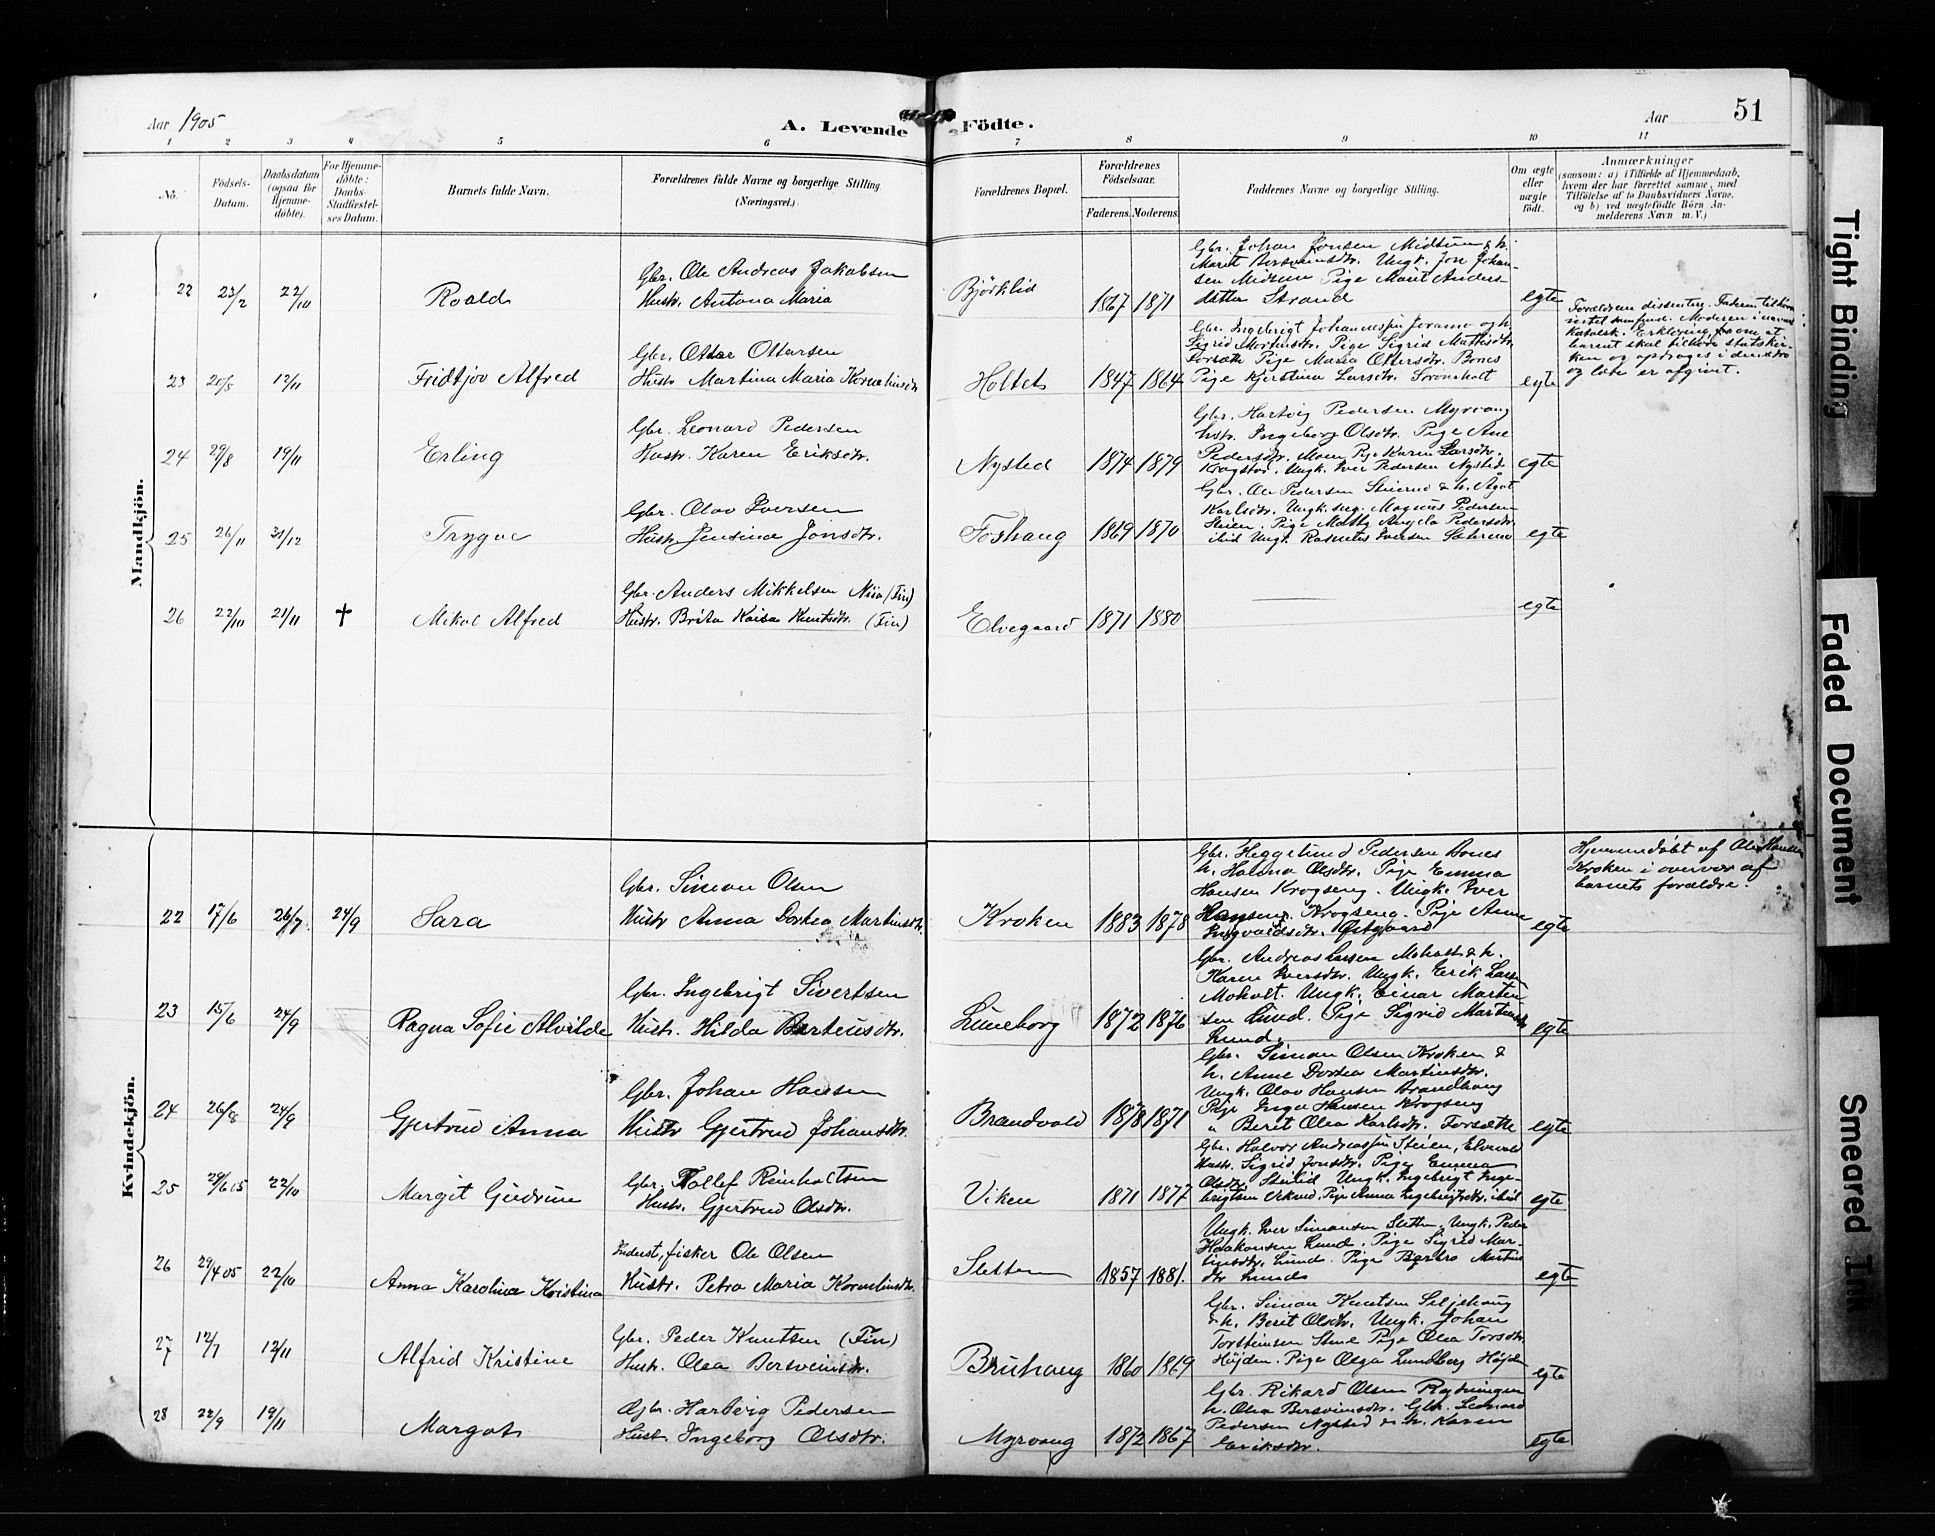 Aar 1905
A. Levende Födte.
Aar
51
1 2 3 4 5 6 7 8 9 10 11
No.
Födsels-
Datum.
Daabsdatum
(ogsaa for
Hjemme-
döbte).
For Hjemme-
döbte:
Daabs-
Stadfæstel-
ses Datum.
Barnets fulde Navn.
Forældrenes fulde Navne og borgerlige Stilling
(Næringsvei.)
Forældrenes Bopæl.
Forældrenes
Födselsaar.
Faderens. Moderens.
Faddernes Navne og borgerlige Stilling.
Om ægte
eller
uægte
födt.
Anmærkninger
(saasom: a) i Tilfælde af Hjemmedaab,
hvem der har forrettet samme, med
Tilföielse af to Daabsvidners Navne,
og b) ved uægtefödte Börn An-
melderens Navn m. V.)
Mandkjön.
22 23/2 22/10 Roald
Gbr. Ole Andreas Jakobsen
Hustr. Antona Maria
Björklid 1867 1871
Gbr. Johan Jonsen Midtun & h.
Marit Bersveinsdtr. Ungk. Jon Johan-
sen Midtun Pige Marit Anders-
datter Strand
egte
23 20/8 12/11 Fridtjov Alfred
Gbr. Ottar Ottarsen
Hustr Martina Maria Kornelinsdtr
Holtet 1847 1864
Gbr. Ingebrigt Johannessen og h.
Sigrid Mortensdtr. Pige Sigrid Mathisdtr
Forsætte Pige Maria Ottersdtr. Bones
Pige Kjerstina Larsdtr. Strömholt
egte
Forældrene dissentere. Faderen tilhörer
intet samfund. Moderen
katolsk. Erklæring om, at
barnet skal tilhöre statskir-
ken og opdrages i dens tro
og lære er afgivet.
24 29/8 19/11 Erling
Gbr. Leonard Pedersen
Hustr. Karen Eriksdtr.
Nysted 1874 1879
Gbr. Hartvig Pedersen Myrvang
hustr. Ingeborg Olsdtr. Pige Ane
Pedersdtr. Moen Pige Karen Larsdtr.
Ungk. Iver Pedersen Nysted
egte
25 26/11 31/12 Trygve
Gbr. Olav Iversen
Hustr. Jensine Jonsdtr.
Foshaug 1869 1870
Gbr. Ole Pedersen & h. Agot
Karlsdtr. Ungk. Magnus Pedersen
Steien. Pige Angela Pedersdtr.
ibid Ungk. Rasmus Iversen
egte
26 22/10 21/11 † Mikal Alfred
Gbr. Anders Mikkelsen Niia (Fin)
Hustr. Brita Kaisa Knutsdtr. (Fin)
Elvegaard 1871 1880
egte
Kvindekjön.
22 17/6 26/7. 24/9 Sara
Gbr. Simon Olsen
Hustr Anna Dortea Martinsdtr.
Kroken 1883 1878
Gbr. Heggelund Pedersen Bones
h. Hanna Olsdtr. Pige Emma
Hansen Krogseng. Ungk. Iver
Hansen Krogseng. Pige Anna
Ingvaldsdtr. Østgaard
egte
Hjemmedöbt af Ole Hansen
Kroken i overvær af
barnets forældre.
23 15/6 24/9 Ragna Sofie Alvilde
Gbr. Ingebrigt Sivertsen
Hustr. Hilda Berteusdtr.
Luneborg 1872 1876
Gbr. Andreas Larsen Moholt & h.
Karen Iversdtr. Ungk. Erik Larsen
Moholt. Ungk. Einar Marten-
sen Lund. Pige Sigrid Martinsdtr
Lund.
egte
24 26/8 24/9 Gjertrud Anna
Gbr. Johan Hansen
Hustr Gjertrud Johansdtr.
Brandvold 1878 1871
Gbr. Simon Olsen Kroken &
h. Anne Dortea Martinsdtr.
Ungk. Olav Hansen Brandhaug
Pige Inga Hansen Krogseng
" Berit Olea Karlsdtr. Forsætte
egte
25 29/6 05 22/10 Margit Gudrun
Gbr. Tollef Reinholtsen
Hustr. Gjertrud Olsdtr.
Viken 1871 1877
Gbr. Halvor Andreassen Steien, Elvevold
Hustr. Sigrid Jonsdtr. Pige Emma
Olsdtr. Ungk. Ingebrigt Inge-
brigtsen Pige Anna Ingebrigtsdtr. ibid
egte
26 29/4 05 22/10 Anna Karolina Kristina
Inderst, fisker Ole Olsen
Hustr. Petra Maria Kornelinsdtr.
Sletten 1857 1881.
Ungk. Iver Simonsen Sletten. Ungk. Peder
Haakonsen Lund. Pige Sigrid Mar-
tinsdtr. Lund. Pige Bertra Martins
dtr Lund
egte
27 12/7 12/11 Alfrid Kristine
Gbr. Peder Knutsen (Fin)
Hustr. Olea Bersveinsdtr.
Bruhaug 1860 1869
Gbr. Simon Knutsen Siljehaug
& h. Berit Olsdtr. Ungk. Johan
Torsteinsen Pige Olea Torsdtr.
Höjden. Pige Olga Lundberg Höjden
egte
28 22/9 19/11 Margot
Gbr. Hartvig Pedersen
Hustr. Ingeborg Olsdtr.
Myrvang 1872 1867
Gbr. Rikard Olsen Rydningen
h. Olea Bersveinsdtr. Gbr. Leonard
Pedersen Nysted & h. Karen
Eriksdtr.
egte
Tight Binding
Faded Document
Smeared Ink